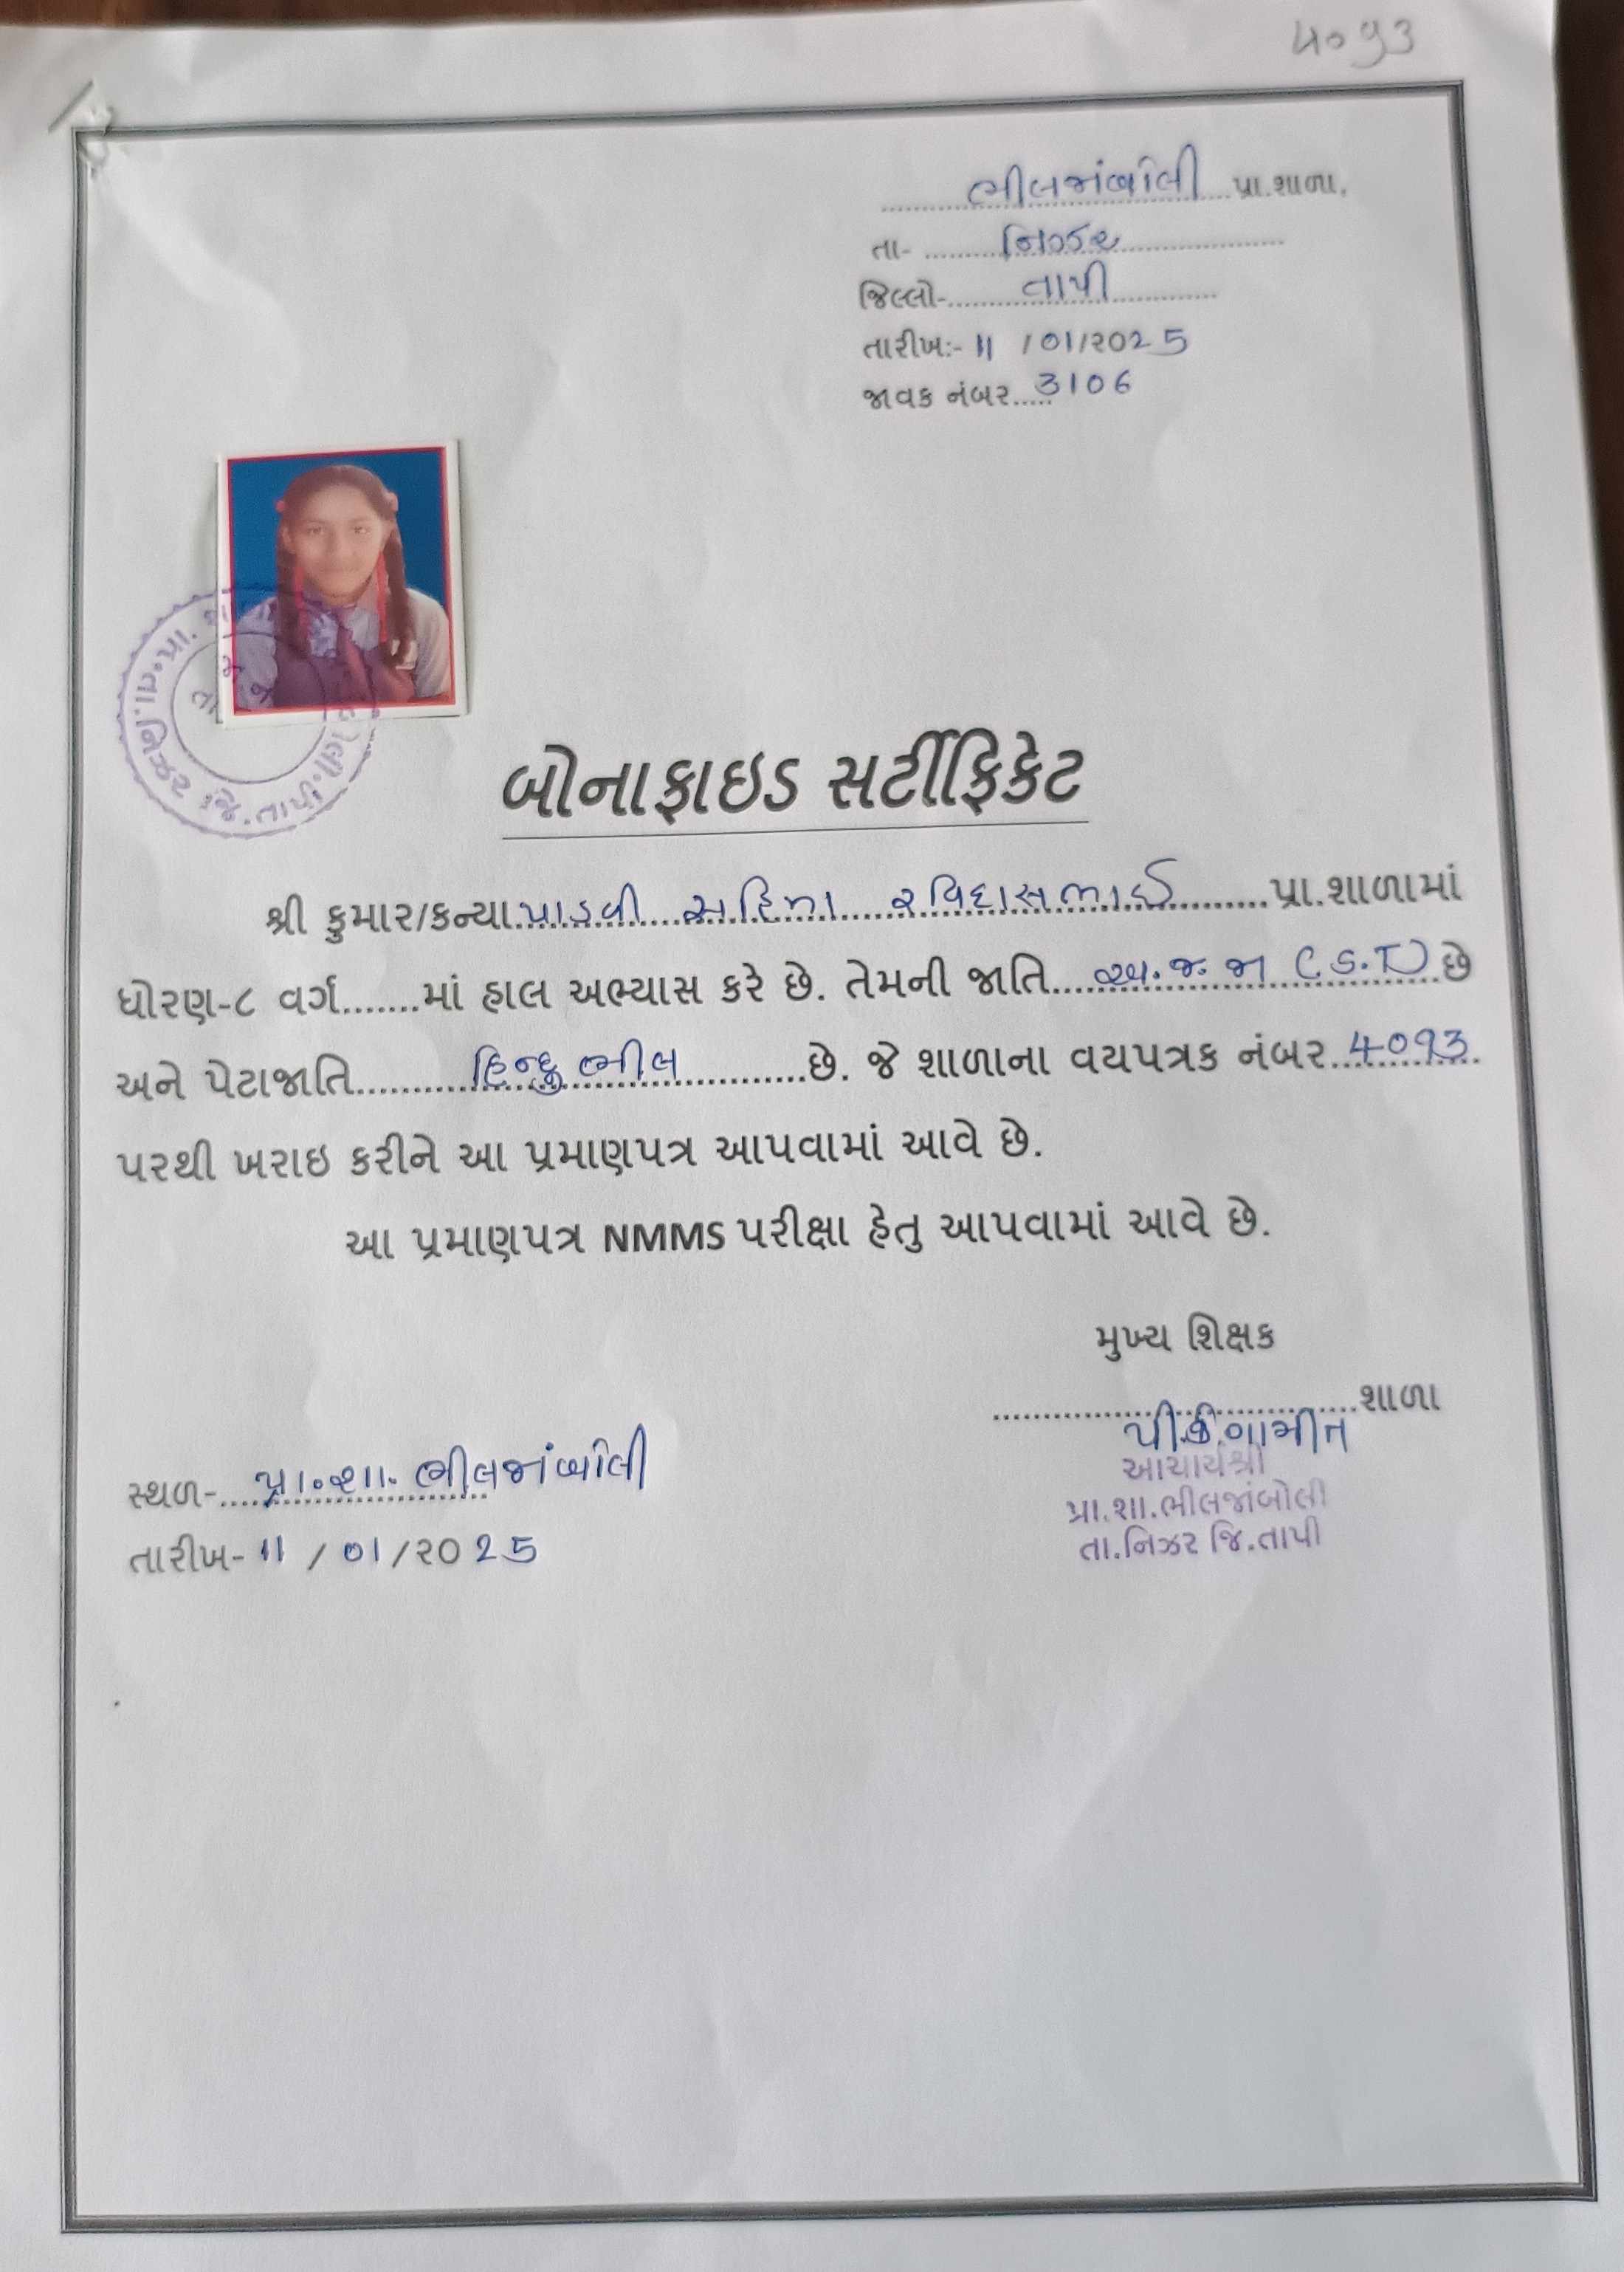 4093
ભીલજાંબોલી પ્રા.શાળા,
તા- નિઝર
જિલ્લો- તાપી
તારીખ:- 11 /01/૨૦25
જાવક નંબર..... 3106
બોનાફાઇડ સર્ટીફિકેટ
શ્રી કુમાર/કન્યા પાડવી રવિદાસભાઈ પ્રા.શાળામાં
ધોરણ-૮ વર્ગ.......માં હાલ અભ્યાસ કરે છે. તેમની જાતિ અ.જ.જા (S.T) છે
અને પેટાજાતિ હિન્દુ ભીલ છે. જે શાળાના વયપત્રક નંબર 4093
પરથી ખરાઇ કરીને આ પ્રમાણપત્ર આપવામાં આવે છે.
આ પ્રમાણપત્ર NMMS પરીક્ષા હેતુ આપવામાં આવે છે.
મુખ્ય શિક્ષક
શાળા
પી.કે.ગામીત
આચાર્યશ્રી
પ્રા.શા.ભીલજાંબોલી
તા.નિઝર જિ.તાપી
સ્થળ- પ્રા.શા. ભીલજાંબોલી
તારીખ- 11 / 01 / ૨૦ 25